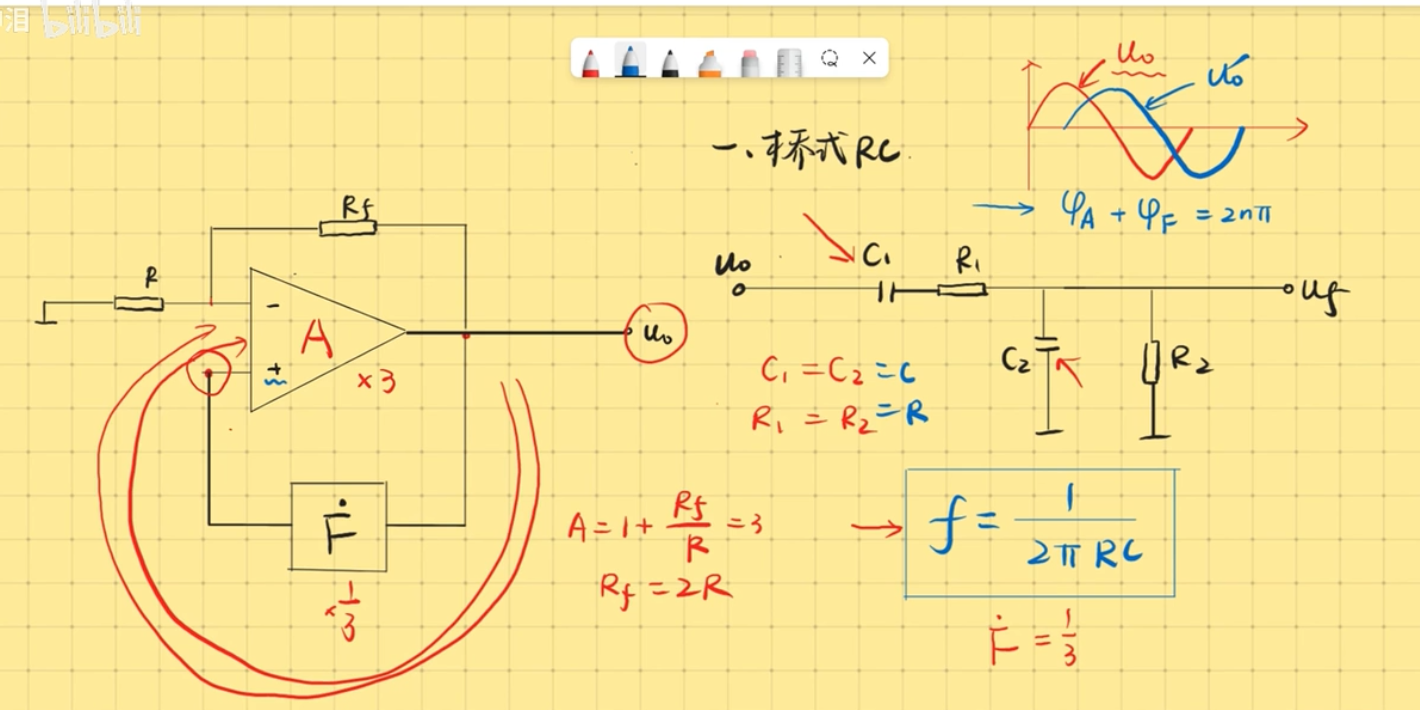 泪 bilibili
一、桥式RC.
uo
uo'
φA + φF = 2nπ
Rf
R
-
A
+
×3
uo
Ḟ
×1/3
uo
C1
R1
uf
C2
R2
C1 = C2 = C
R1 = R2 = R
A = 1 + Rf/R = 3
Rf = 2R
f = 1/2πRC
Ḟ = 1/3